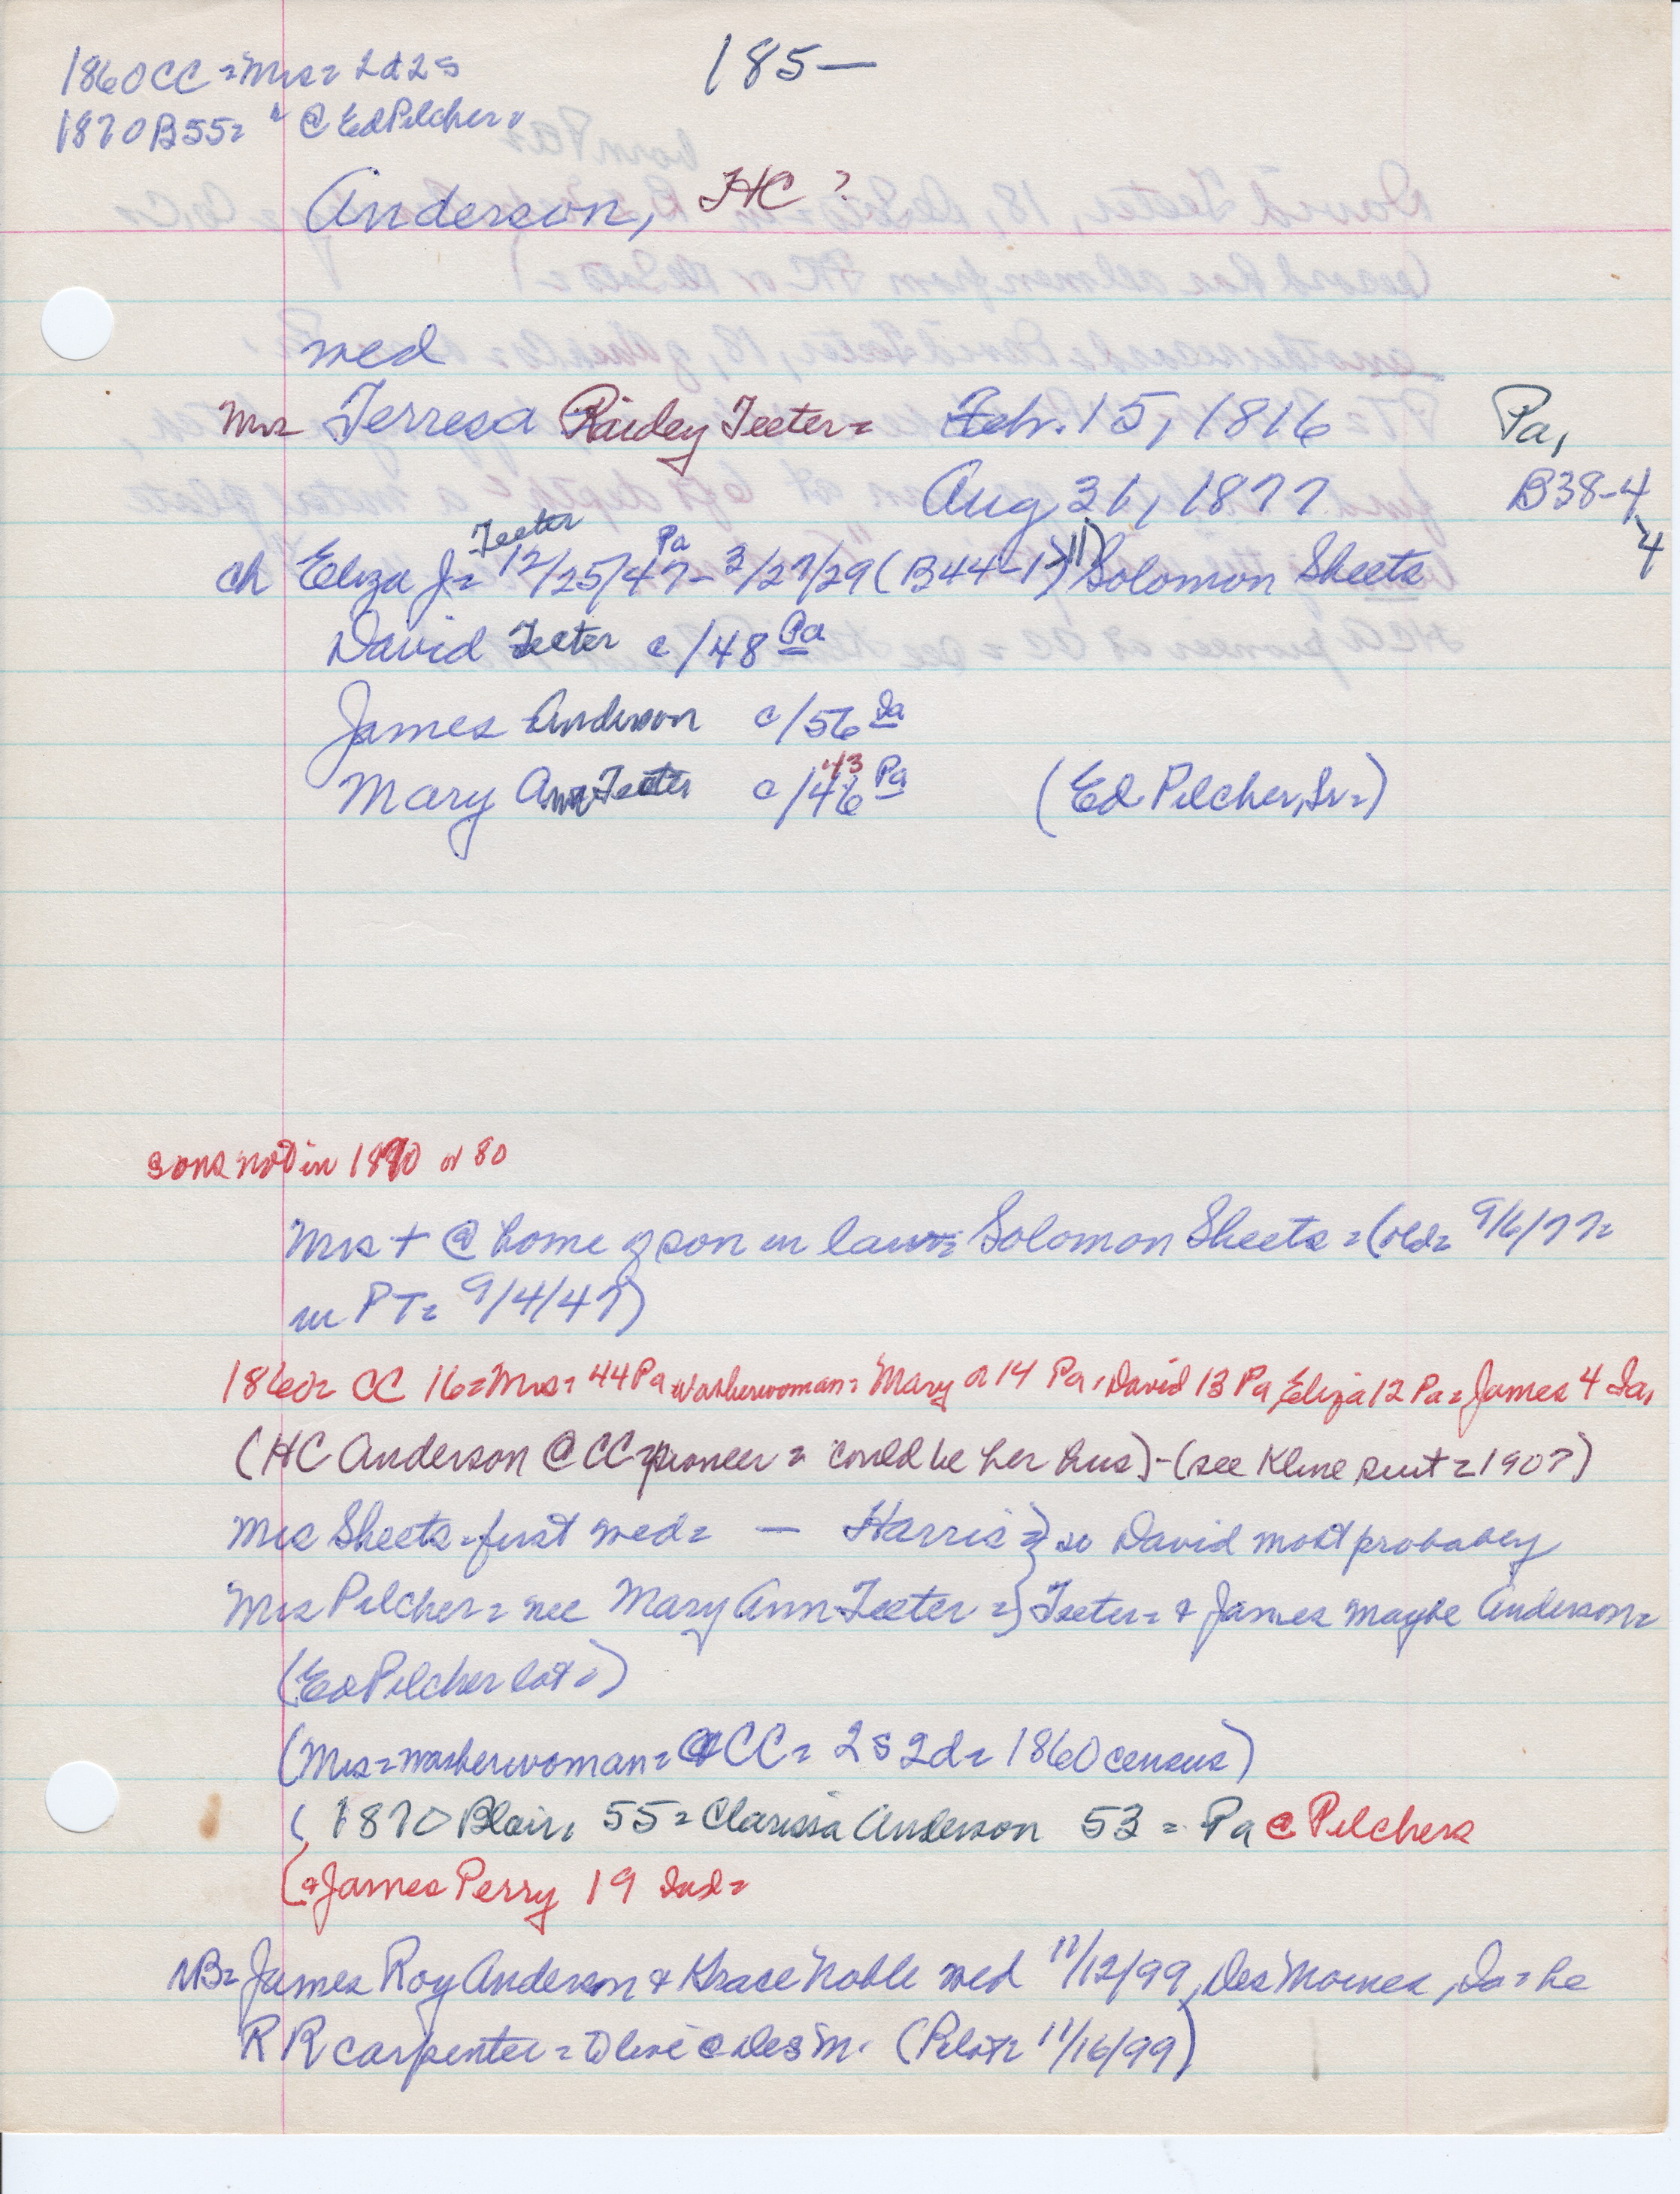 1860 CC = Mrs = 2d 2s
185—
1870 B55 = " @ Ed Pilcher =
Anderson, HC ?
wed
Mrs Terresa Raidey Teeter = Feb. 15, 1816 Pa,
Aug 31, 1877 B38-4
4
Teeter Pa
ch Eliza J = 12/25/47 - 3/27/29 (B44-1) 11) Solomon Sheets
David Teeter c/48 Pa
James Anderson c/56 Ia
'43
Mary Ann Teeter c/46 Pa (Ed Pilcher, Sr=)
sons not in 1870 or 80
Mrs + @ home of son in law = Solomon Sheets = (old = 9/6/77 =
in PT = 9/4/47)
1860 = CC 16 = Mrs = 44 Pa washerwoman = Mary a 14 Pa, David 13 Pa, Eliza 12 Pa = James 4 Ia,
(HC Anderson @ CC = pioneer = could be her hus) - (see Kline suit = 1907)
Mrs Sheets = first wed = — Harris =} so David most probabey
Mrs Pilcher = nee Mary Ann Teeter =} Teeter = & James maybe Anderson =
(Ed Pilcher lot =)
(Mrs = washerwoman = @ CC = 2s 2d = 1860 census)
( 1870 Blair, 55 = Clarissa Anderson 53 = Pa @ Pilchers
(& James Perry 19 Ind =
NB = James Roy Anderson & Grace Noble wed 11/12/99, Des Moines, Ia = he
RR carpenter = to live @ Des M. (Pilot = 11/16/99)